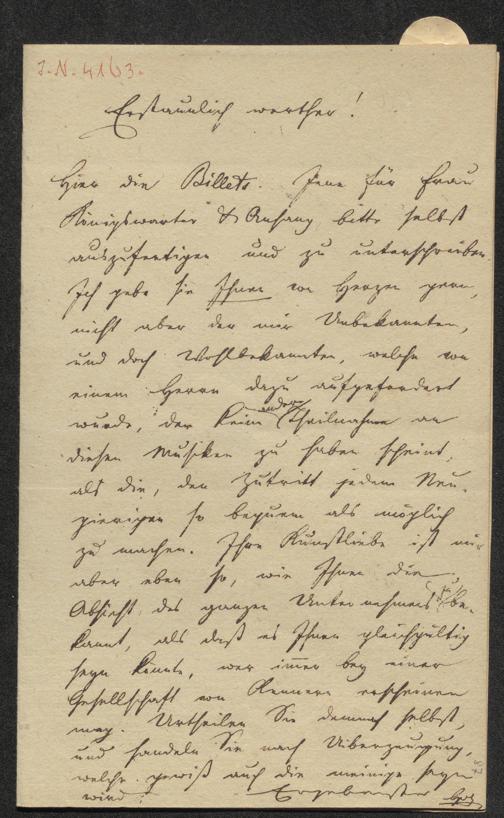 I.N. 4163.
Erstaunlich werther!
Hier die Billets. Jene für Frau
Königswarter & Anhang bitte selbst
auszufertigen und zu unterschreiben
Ich gebe sie Ihnen von Herzen gern,
nicht aber der mir Unbekannten,
und doch Wohlbekannten, welche von
einem Herrn dazu aufgefordert
wurde, der kein andere Theilnahme an
diesen Musiken zu haben scheint,
als die, den Zutritt jedem Neu-
gierigen so bequem als möglich
zu machen. Ihre Kunstliebe ist mir
aber eben so, wie Ihnen die
Absicht des ganzen Unternehmens be-
kannt, als daß es Ihnen gleichgültig
seyn könnte, wer immer bey einer
Gesellschaft von Kennern erscheinen
mag. Urtheilen Sie demnach selbst,
und handeln Sie nach Uiberzeugung,
welche gewiß auch die meinige seyn
wird. Ergebenster